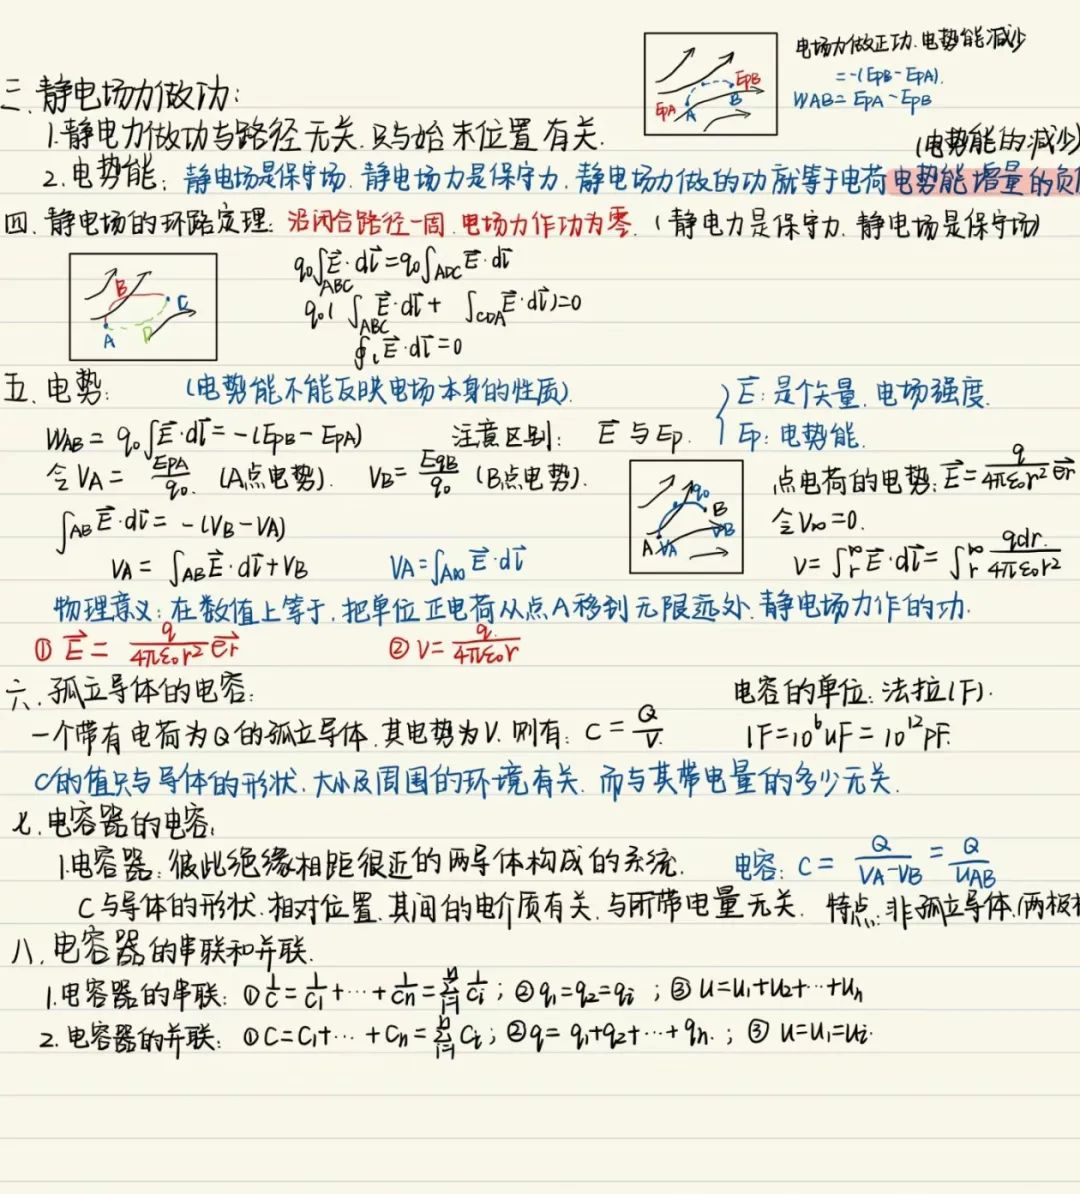 电场力做正功.电势能减少
=-(EPB-EPA).
WAB=EPA-EPB
EPA A B EPB
三.静电场力做功:
1.静电力做功与路径无关.只与始末位置有关.
(电势能的减少)
2.电势能: 静电场是保守场.静电场力是保守力.静电场力做的功就等于电荷电势能增量的负
四.静电场的环路定理: 沿闭合路径一周.电场力作功为零.(静电力是保守力.静电场是保守场)
A B C D
q₀∫ABC E⃗·dl⃗=q₀∫ADC E⃗·dl⃗
q₀(∫ABC E⃗·dl⃗+∫CDA E⃗·dl⃗)=0
∮l E⃗·dl⃗=0
五.电势: (电势能不能反映电场本身的性质).
WAB=q₀∫E⃗·dl⃗=-(EPB-EPA) 注意区别: E⃗与Ep. { E⃗:是个矢量.电场强度. Ep:电势能.
令VA=EPA/q₀.(A点电势). VB=EqB/q₀(B点电势).
∫AB E⃗·dl⃗=-(VB-VA)
VA=∫AB E⃗·dl⃗+VB VA=∫A∞ E⃗·dl⃗
A VA q₀ B VB
点电荷的电势:E⃗=q/4πε₀r² e⃗r
令V∞=0.
V=∫r^∞ E⃗·dl⃗=∫r^∞ qdr./4πε₀r²
物理意义:在数值上等于.把单位正电荷从点A移到无限远处.静电场力作的功.
① E⃗=q/4πε₀r² e⃗r ② V=q/4πε₀r
六.孤立导体的电容: 电容的单位:法拉(F).
一个带有电荷为Q的孤立导体.其电势为V.则有:C=Q/V. 1F=10⁶uF=10¹²pF.
C的值只与导体的形状.大小及周围的环境有关.而与其带电量的多少无关.
七.电容器的电容:
1.电容器:彼此绝缘相距很近的两导体构成的系统. 电容:C=Q/VA-VB=Q/UAB
C与导体的形状.相对位置.其间的电介质有关.与所带电量无关. 特点:非孤立导体.(两极
八.电容器的串联和并联.
1.电容器的串联:①1/C=1/C₁+…+1/Cn=∑(i=1,n)1/Ci;②q₁=q₂=qi;③U=U₁+U₂+…+Un
2.电容器的并联:①C=C₁+…+Cn=∑(i=1,n)Ci;②q=q₁+q₂+…+qn.;③U=U₁=Ui.